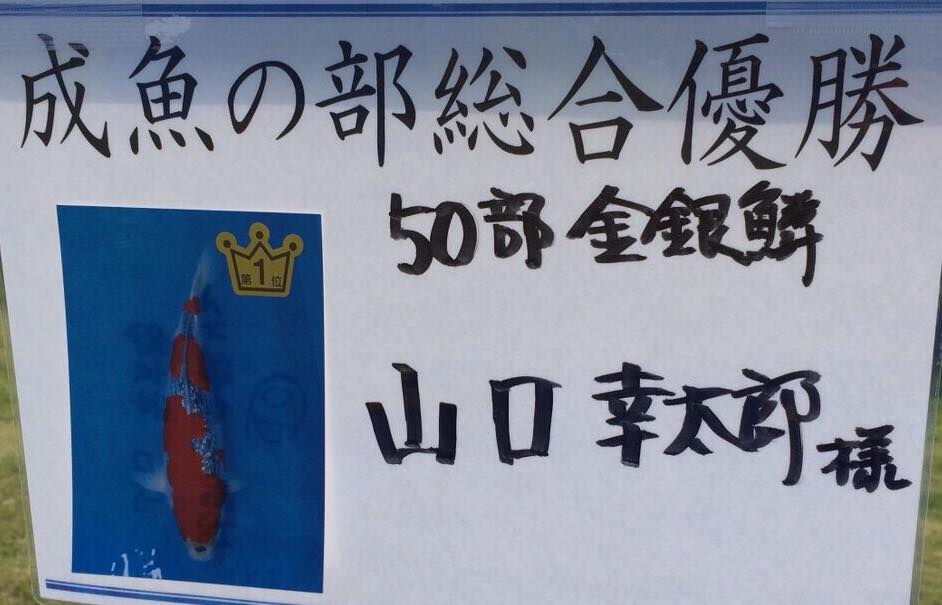 成魚の部総合優勝
50部 金銀鱗
第1位
山口幸太郎様